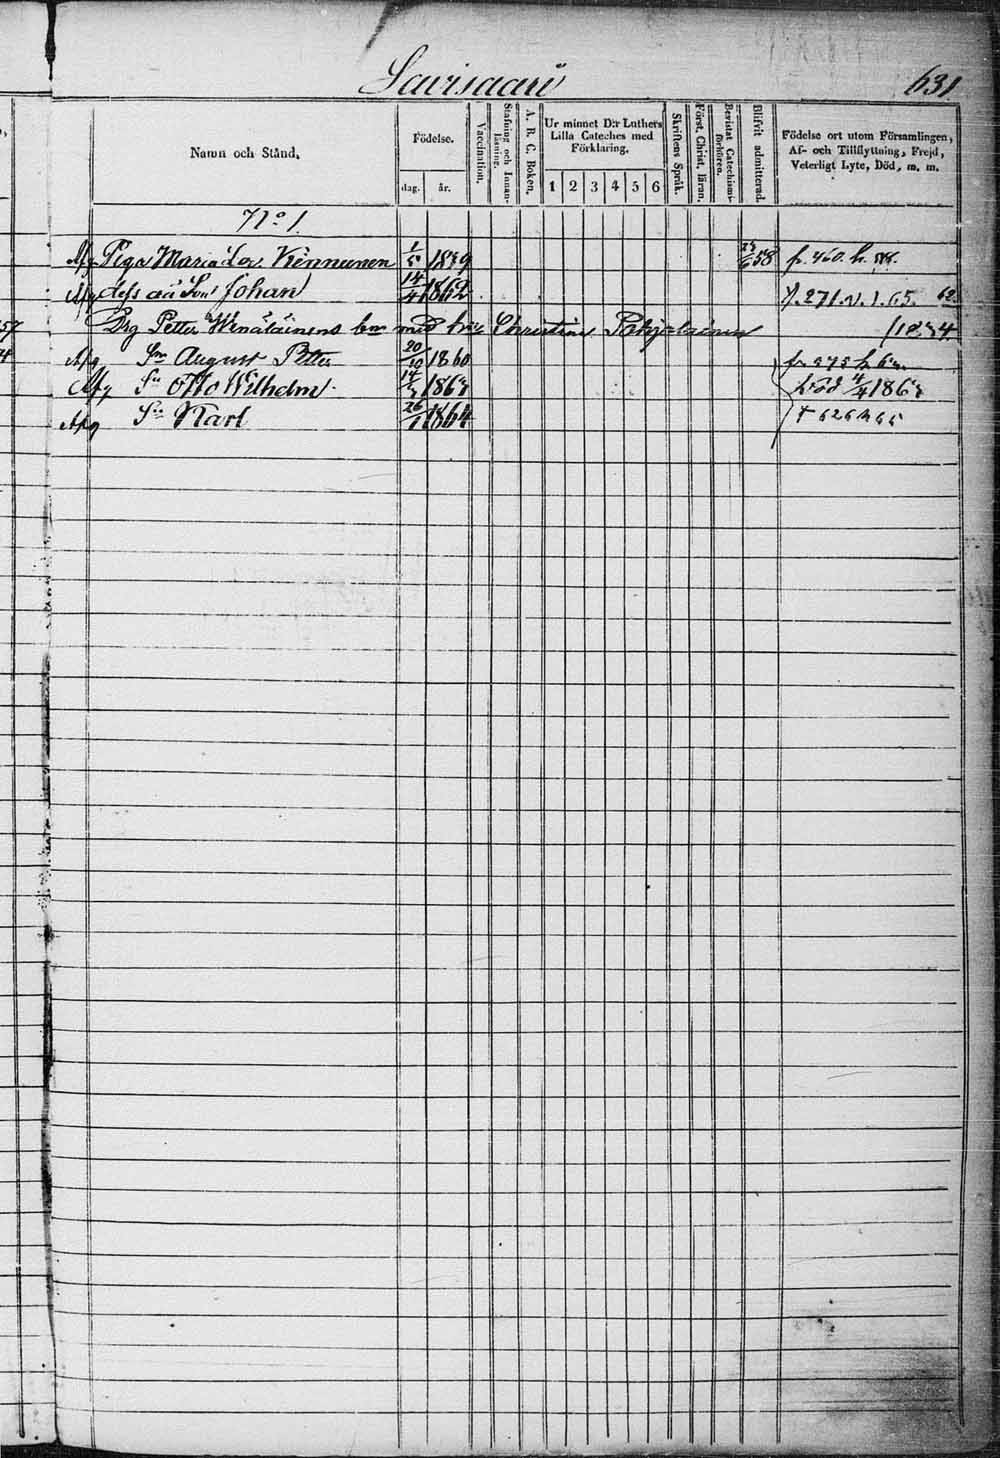 Savisaari
631
Namn och Stånd.
Födelse.
dag. år.
Vaccination.
Stafning och Innanläsning.
A. B. C. Boken.
Ur minnet D:r Luthers
Lilla Cateches med
Förklaring.
1 2 3 4 5 6
Skriftens Språk.
Först. Christ. läran.
Bevistat Catechismiförhören.
Blifvit admitterad.
Födelse ort utom Församlingen,
Af- och Tillflyttning, Frejd,
Veterligt Lyte, Död, m. m.
No 1.
Afg Piga Maria Kinnunen 1/5 1839 58 fr. 460. h.
Afg dess oä Son Johan 14/4 1862 271 65. 62
Drg Petter Wenäläinens barn med Christina Pohjolainen 1834
Afg Sn August Petter 20/10 1860
Afg Sn Otto Wilhelm 14/3 1863 död 11/4 1863
Afg Sn Karl 26/1 1864 626 65
57
4